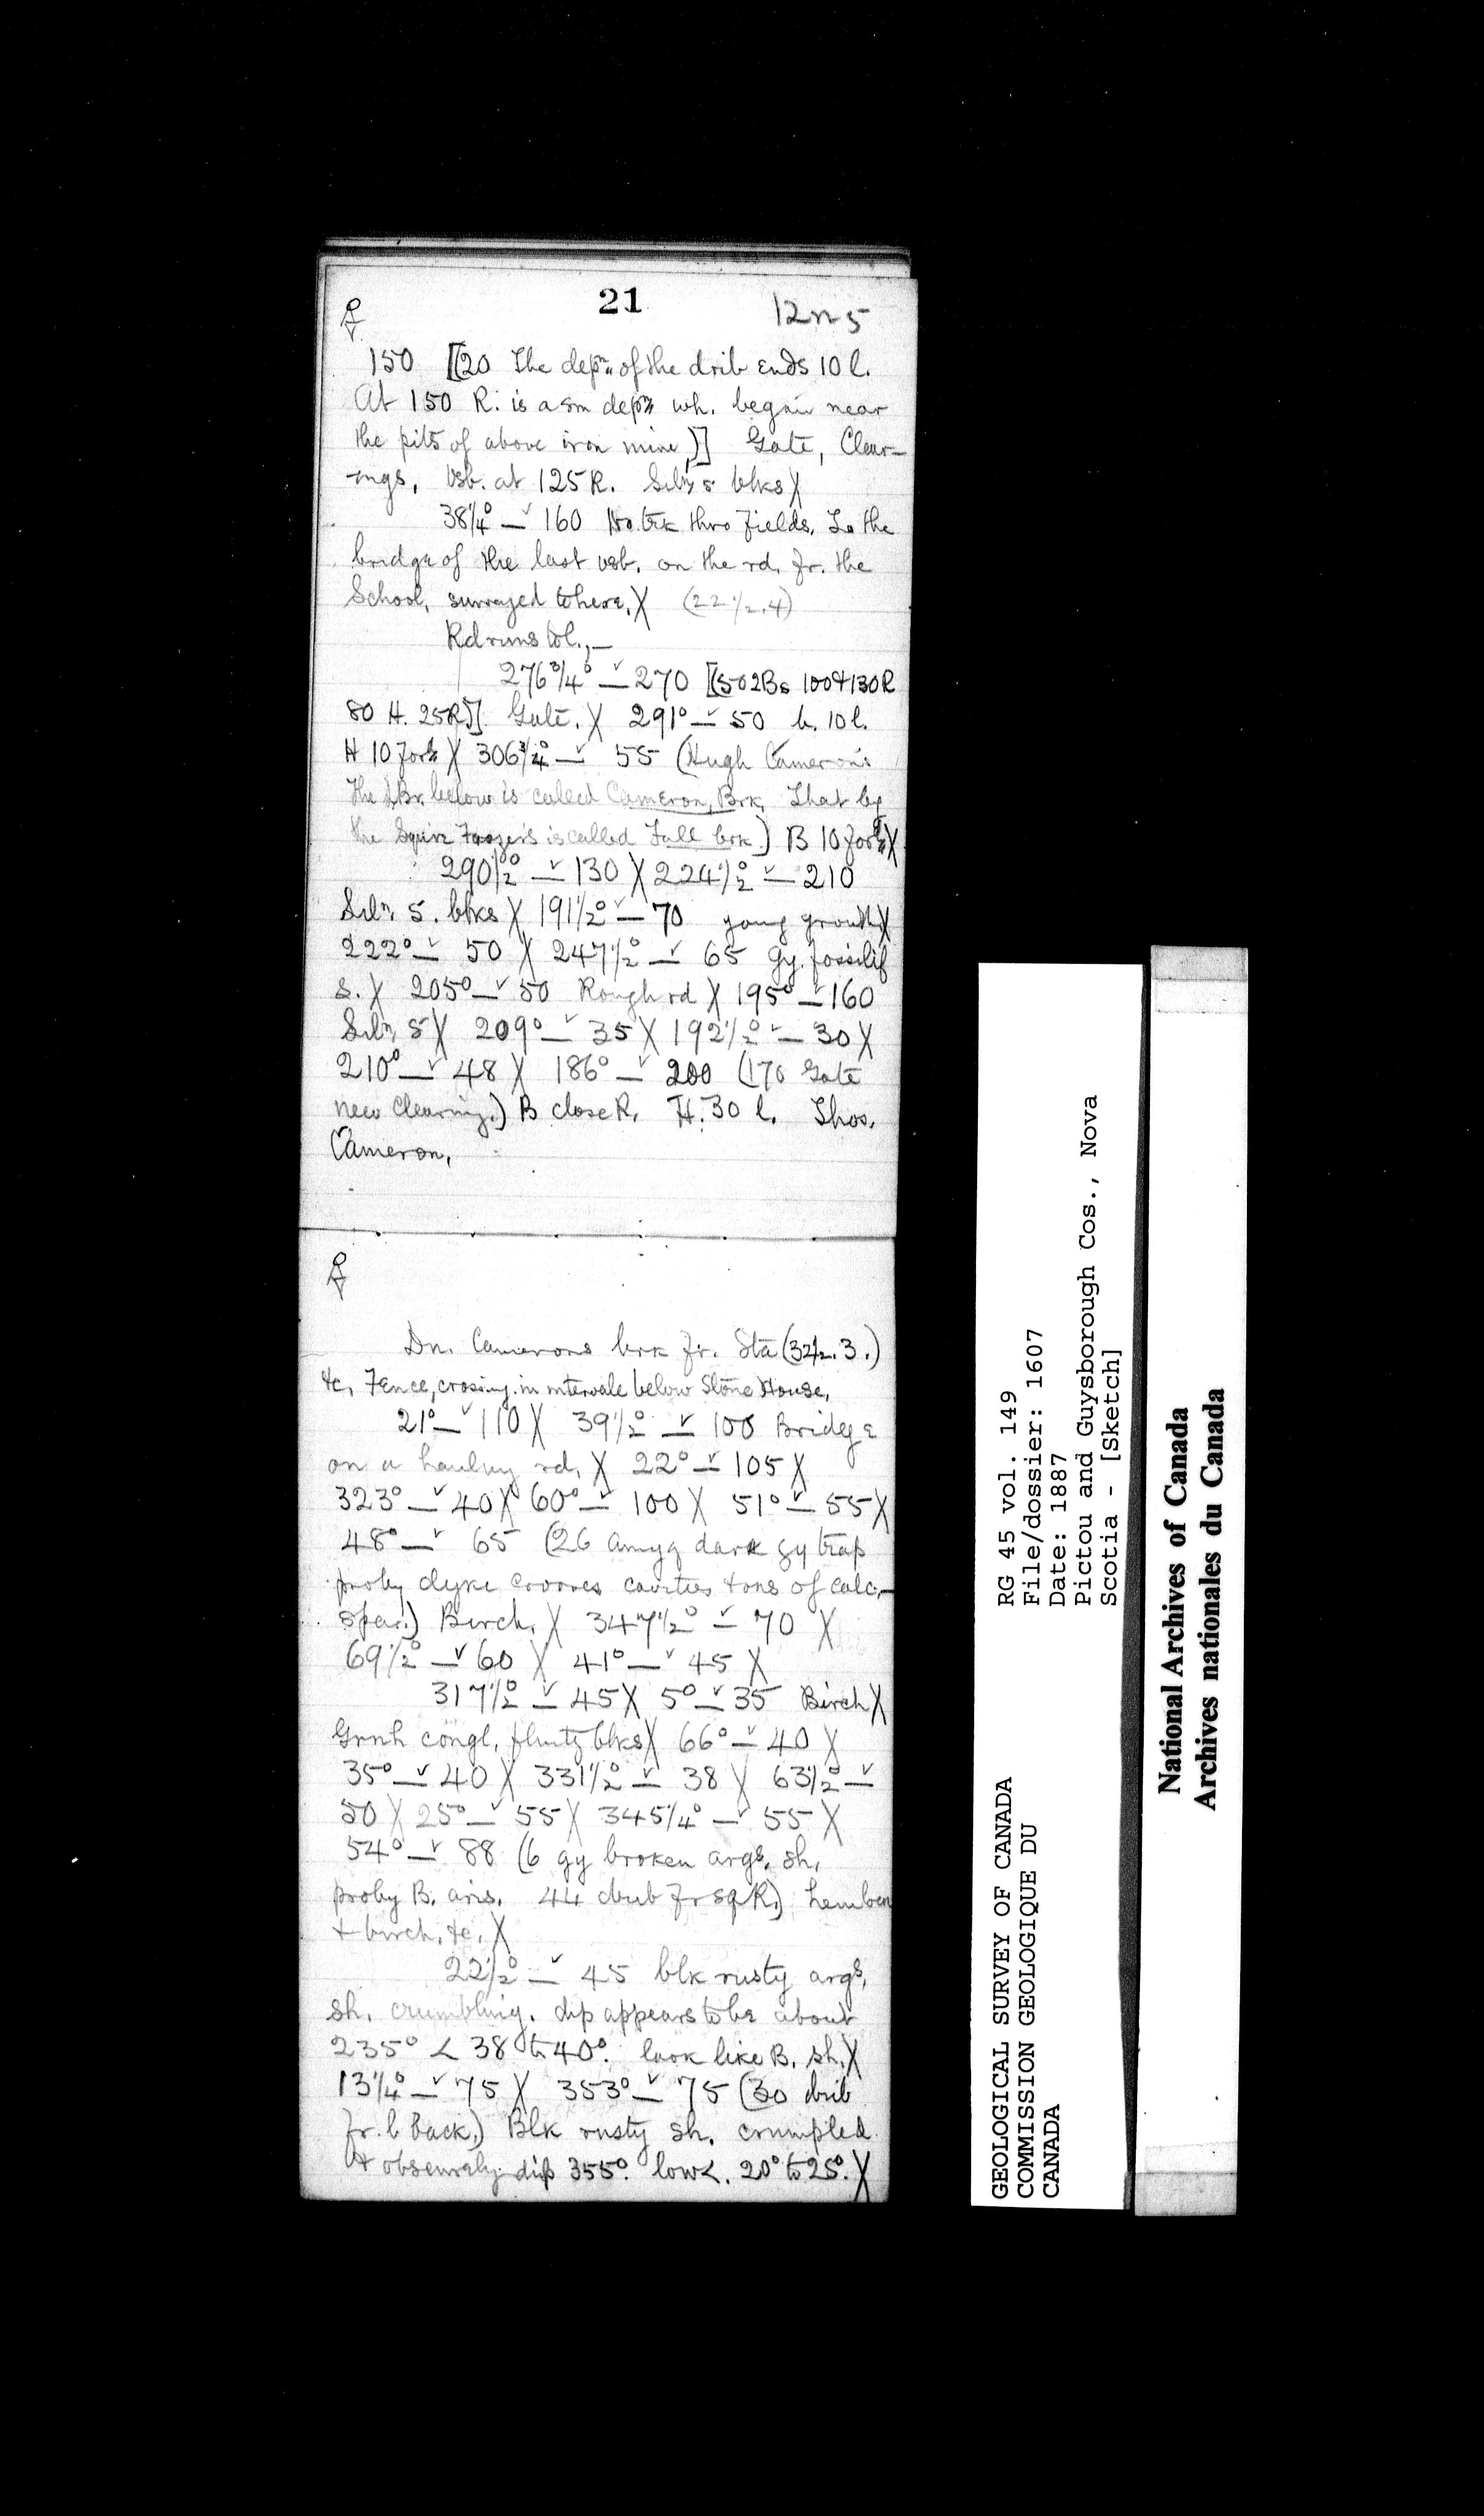 21
12 n 5
150 [(20 The depn of the drib ends 10 l.
At 150 R. is a sm depn wh. began near
the pits of above iron mine,)] Gate, Clear-
-ings, vsb. at 125 R. Siln s blks X
38¼° — 160 No trk thro fields. To the
bridge of the last vsb. on the rd. fr. the
School, surveyed to here. X (22½.4)
Rd runs to l., —
276¾° — 270 [(50 2Bs 100 & 130 R
80 H. 25R)] Gate. X 291° — 50 b. 10 l.
H 10 forn X 306¾° — 55 (Hugh Cameron's
The Br. below is called Cameron, Brk. That by
the Squire Frazer's is called Fall brk) B 10 forn X
290½° — 130 X 224½° — 210
Siln s. blks X 191½° — 70 young growth X
222° — 50 X 247½° — 65 gy. fossilif
s. X 205° — 50 Rough rd X 195° — 160
Siln s X 209° — 35 X 192½° — 30 X
210° — 48 X 186° — 200 (170 Gate
new clearing.) B close R. H. 30 l. Thos.
Cameron.
Dn. Camerons brk fr. Sta (32½.3.)
&c, Fence, crossing. in intervale below Stone House,
21° — 110 X 39½° — 100 Bridge
on a hauling rd. X 22° — 105 X
323° — 40 X 60° — 100 X 51° — 55 X
48° — 65 (26 amyg dark gy trap
proby dyke cavities of calc-
spar.) Birch. X 347½° — 70 X
69½° — 60 X 41° — 45 X
317½° — 45 X 5° — 35 Birch X
Grnh congl, flinty blks X 66° — 40 X
35° — 40 X 331½° — 38 X 63½° —
50 X 25° — 55 X 345¼° — 55 X
54° — 88 (6 gy broken args. sh,
proby B. 44 drib fr sq R.)
& birch, &c. X
22½° — 45 blk rusty args,
sh. crumbling. dip appears to be about
235° < 38 to 40°. look like B. sh. X
13¼° — 75 X 353° — 75 (30 drib
fr. l back.) Blk rusty sh. crumpled
& obscurely dip 355°. low <. 20° to 25°. X
GEOLOGICAL SURVEY OF CANADA
COMMISSION GEOLOGIQUE DU
CANADA
RG 45 vol. 149
File/dossier: 1607
Date: 1887
Pictou and Guysborough Cos., Nova
Scotia - [Sketch]
National Archives of Canada
Archives nationales du Canada